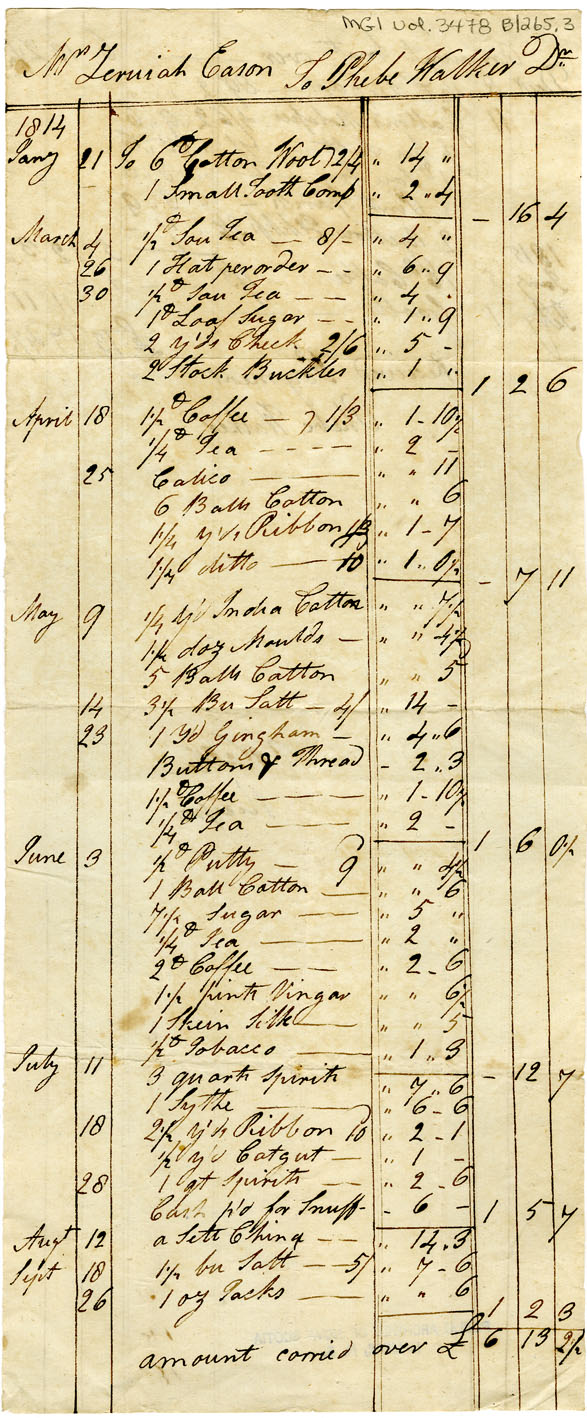 MG1 Vol. 3478 B1265.3
Mr Zeruiah Eason To Phebe Walker Dr
1814
Jany 21 To 6 lb Cotton Wool 2/4 " 14 "
1 Small Tooth Comb " 2 " 4
- 16 4
March 4 1/2 lb Sou Tea — 8/- " 4 "
26 1 Hat per order - - " 6 " 9
30 1/2 lb Sou Tea — — " 4 "
1 lb Loaf Sugar - - " 1 " 9
2 y'ds Check 2/6 " 5 -
2 Stock Buckles " 1 "
1 2 6
April 18 1 1/2 lb Coffee — 1/3 " 1 - 10 1/2
1/4 lb Tea - - - - " 2 -
25 Calico — " " 11
6 Balls Cotton " " 6
1 1/4 y'ds Ribbon 1/3 " 1 - 7
1 1/4 ditto — 10 " 1 " 0 1/2
- 7 11
May 9 1/4 y'd India Cotton " " 7 1/2
1/2 doz Moulds - " " 4 1/2
5 Balls Cotton " " 5
14 3 1/2 Bu Salt - 4/ " 14 -
23 1 Yd Gingham - " 4 " 6
Buttons & Thread - 2 " 3
1 1/2 lb Coffee — " 1 - 10 1/2
1/4 lb Tea — " 2 -
1 6 0 1/2
June 3 1/2 lb Putty — 9 " " 4 1/2
1 Ball Cotton — " " 6
7 1/2 Sugar — " 5 "
1/4 lb Tea — " 2 "
2 lb Coffee — " 2 - 6
1 1/2 pints Vingar " " 6 1/2
1 Skein Silk — " " 5
1/2 lb Tobacco — " 1 " 3
- 12 7
July 11 3 quarts Spirits " 7 - 6
1 Sythe — " 6 - 6
18 2 1/2 y'ds Ribbon 10 " 2 - 1
1/2 y'd Catgut — " 1 -
28 1 qt Spirits — " 2 - 6
Cash p'd for Snuff - - 6 -
1 5 7
Augt 12 a Sett China - - " 14 " 3
Sept 18 1 1/2 bu Salt — 5/ " 7 - 6
26 1 oz Tacks — " " 6
1 2 3
amount carried over £ 6 13 2 1/2